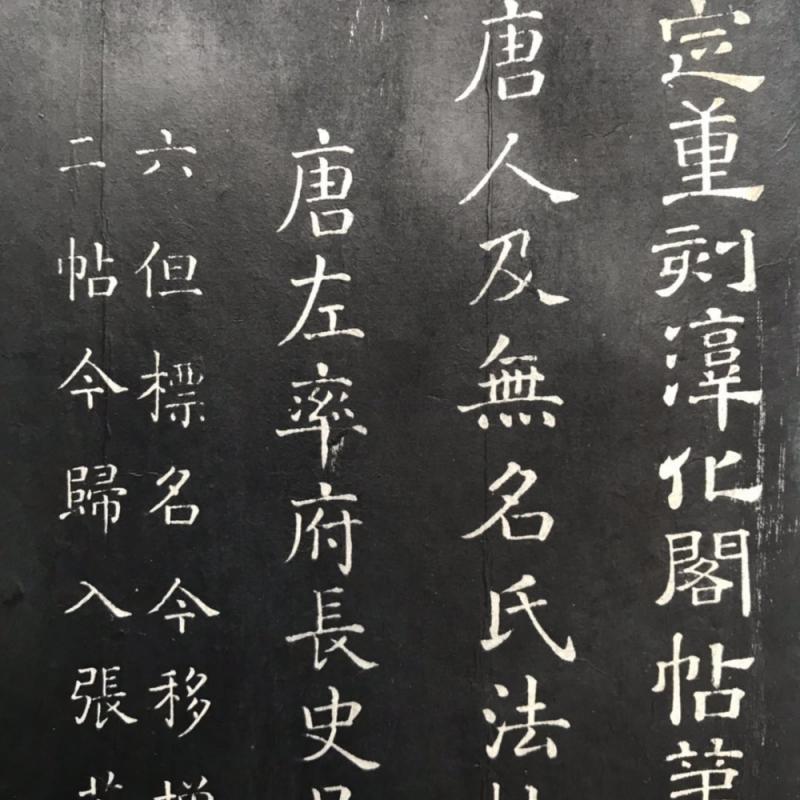 定重刻淳化閣帖第
唐人及無名氏法
唐左率府長史
六但標名今移增
二帖今歸入張